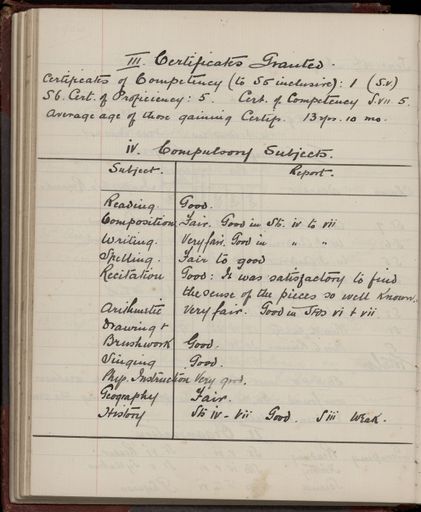 III. Certificates Granted.
Certificates of Competency (to S5 inclusive): 1 (S.V)
S6. Cert. of Proficiency: 5. Cert. of Competency S.VII 5.
Average age of those gaining Certifs. 13 yrs. 10 mo.
IV. Compulsory Subjects.
Subject. Report.
Reading Good.
Composition Fair. Good in Sts. IV to VII
Writing. Very fair. Good in " "
Spelling. Fair to good
Recitation Good: It was satisfactory to find
the sense of the pieces so well known.
Arithmetic Very fair. Good in Stds VI & VII.
Drawing &
Brushwork Good.
Singing Good.
Phys. Instruction Very good.
Geography Fair.
History Sts IV - VII Good. SIII Weak.